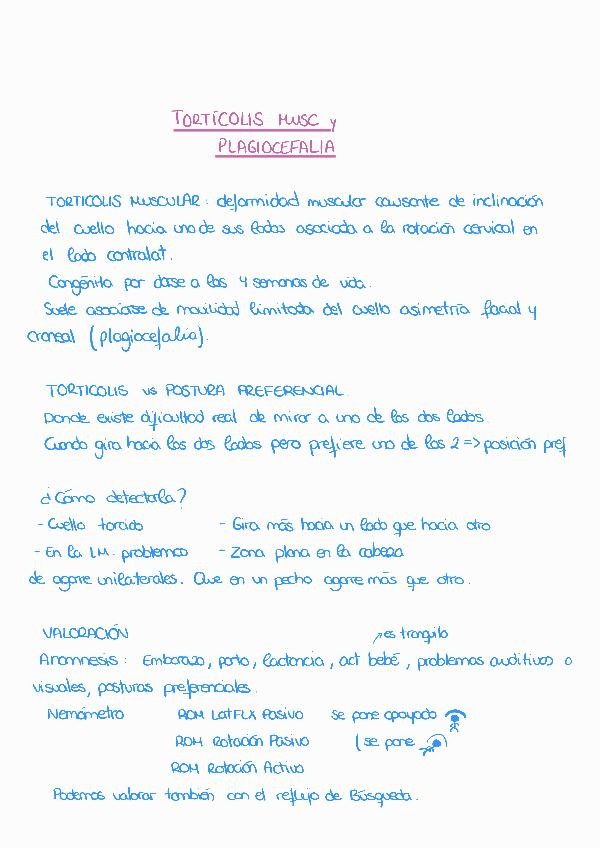 TORTÍCOLIS MUSC y
PLAGIOCEFALIA
TORTICOLIS MUSCULAR: deformidad muscular causante de inclinación
del cuello hacia uno de sus lados asociada a la rotación cervical en
el lado contralat.
Congénito por darse a las 4 semanas de vida.
Suele asociarse de movilidad limitada del cuello asimetría facial y
craneal (plagiocefalia).
TORTICOLIS vs POSTURA PREFERENCIAL
Donde existe dificultad real de mirar a uno de los dos lados.
Cuando gira hacia los dos lados pero prefiere uno de los 2 => posición pref
¿Cómo detectarla?
- Cuello torcido - Gira más hacia un lado que hacia otro
- En la L.M. problemas - Zona plana en la cabeza
de agarre unilaterales. Que en un pecho agarre más que otro.
VALORACIÓN ↗es tranquilo
Anamnesis: Embarazo, parto, lactancia, act bebé, problemas auditivos o
visuales, posturas preferenciales.
Nemómetro ROM LatFLX Pasivo se pone apoyado
ROM Rotación Pasivo (se pone
ROM Rotación Activo
Podemos valorar también con el reflejo de Búsqueda.